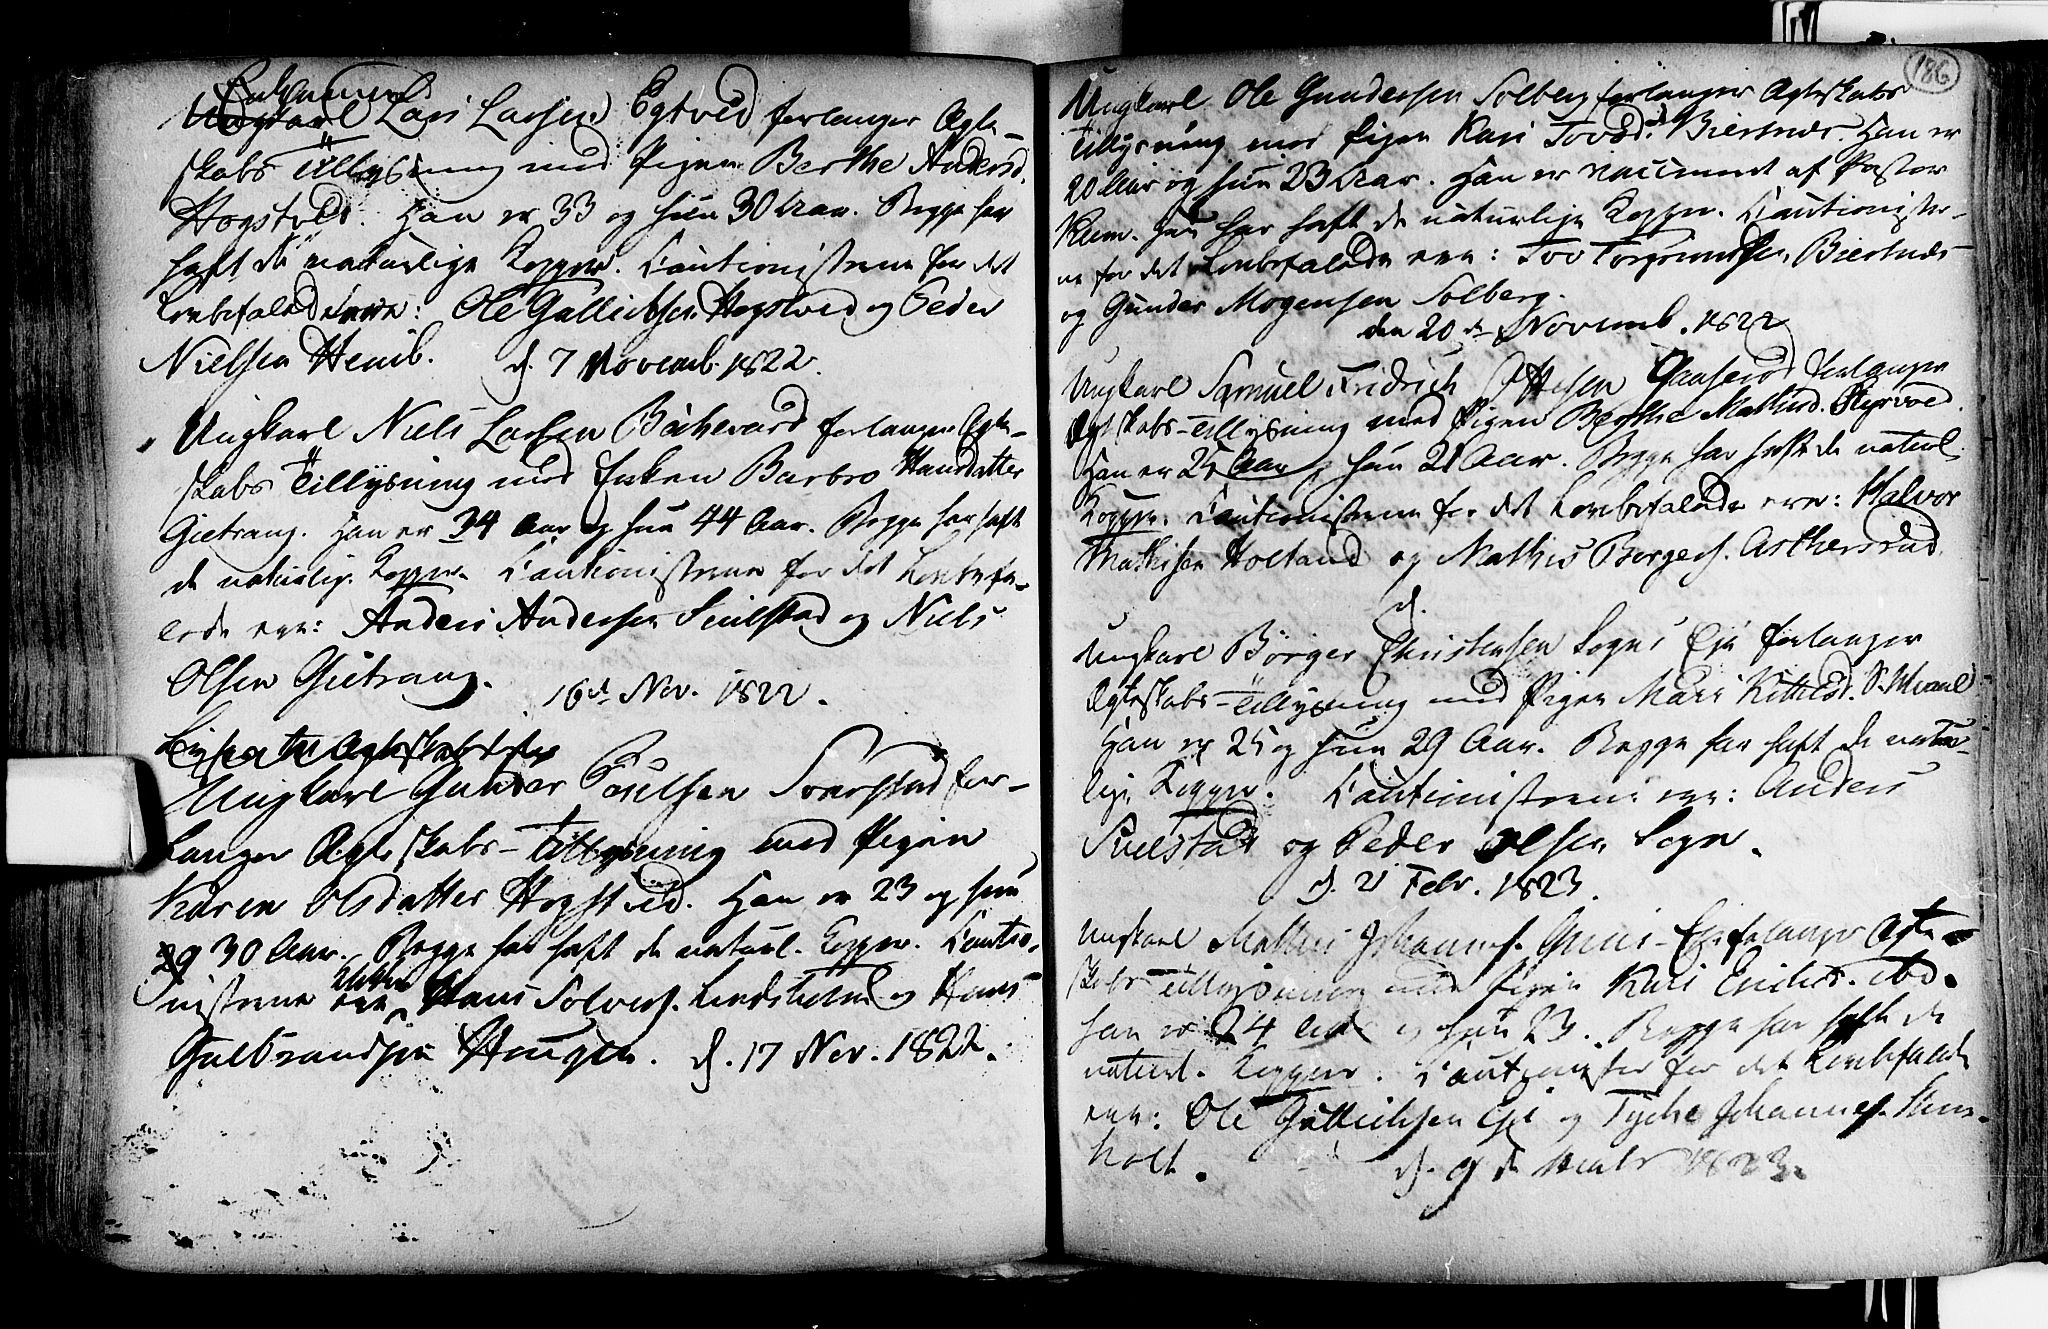 Enkemand
Ungkarl Lars Larsen Egtved forlanger Ægte-
skabs Tillysning med Pigen Berthe Andersd.
Hogstvet. Han er 33 og hun 30 Aar. Begge har
haft de naturlige Kopper. Cautionisterne for det
Lovbefalede ere: Ole Gullichsen Hogstved og Peder
Nielsen Hemb. d. 7 Novemb. 1822.
Ungkarl Niels Larsen Bachevard forlanger Ægte-
skabs Tillysning med Enken Barbro Hansdatter
Gietrang. Han er 34 Aar og hun 44 Aar. Begge har haft
de naturlig. Kopper. Cautionisterne for det Lovbefa-
lede ere: Anders Andersen Snilstad og Niels
Olsen Gietrang. 16de Nov. 1822.
Ungkarl Gunder Poulsen Sverstad for-
langer Ægteskabs-Tillysning med Pigen
Karen Olsdatter Hogstved. Han er 23 og hun
30 Aar. Begge har haft de naturl. Kopper. Cautio-
nisterne ere Hans Solves. Lindsholm og Hans
Gulbrandsen Haugen. d. 17 Nov. 1822.
186
Ungkarl Ole Gundersen Solberg forlanger Ægteskabs
Tillysning med Pigen Kari Tovsd. Biertnæs. Han er
20 Aar og hun 23 Aar. Han er vaccineret af Pastor
Klem. hun har haft de naturlige Kopper. Cautionister-
ne for det Lovbefalede ere: Tov Torgrimsen Biertnæs
og Gunder Mogensen Solberg.
den 20de Novemb. 1822
Ungkarl Samuel Fridrich Ottesen forlanger
Ægteskabs-Tillysning med Pigen Berthe Mathisd. Styrvold.
Han er 25 Aar og hun 21 Aar. Begge har haft de naturl.
Kopper. Cautionisterne for det Lovbefalede ere: Halvor
Mathisen Holtand og Mathis Borgers. Askersrud.
d.
Ungkarl Börger Christensen Sogns Eje forlanger
Ægteskabs-Tillysning med Pigen Mari Kittilsd.
Han er 25 og hun 29 Aar. Begge har haft de natur-
lige Kopper. Cautionisterne ere: Anders
Snilstad og Peder Olsen Sogn.
d. 21 Febr. 1823.
Ungkarl Mathis Johannes. Eje forlanger Ægte-
skabs-Tillysning med Pigen Kari Endersd. ibd.
han er 24 Aar og hun 23. Begge har haft de
naturl. Kopper. Cautionister for det Lovbefalede
ere: Ole Gullichsen Eje og Tyche Johannes. Skins-
holt. d. 9de Marts 1823.